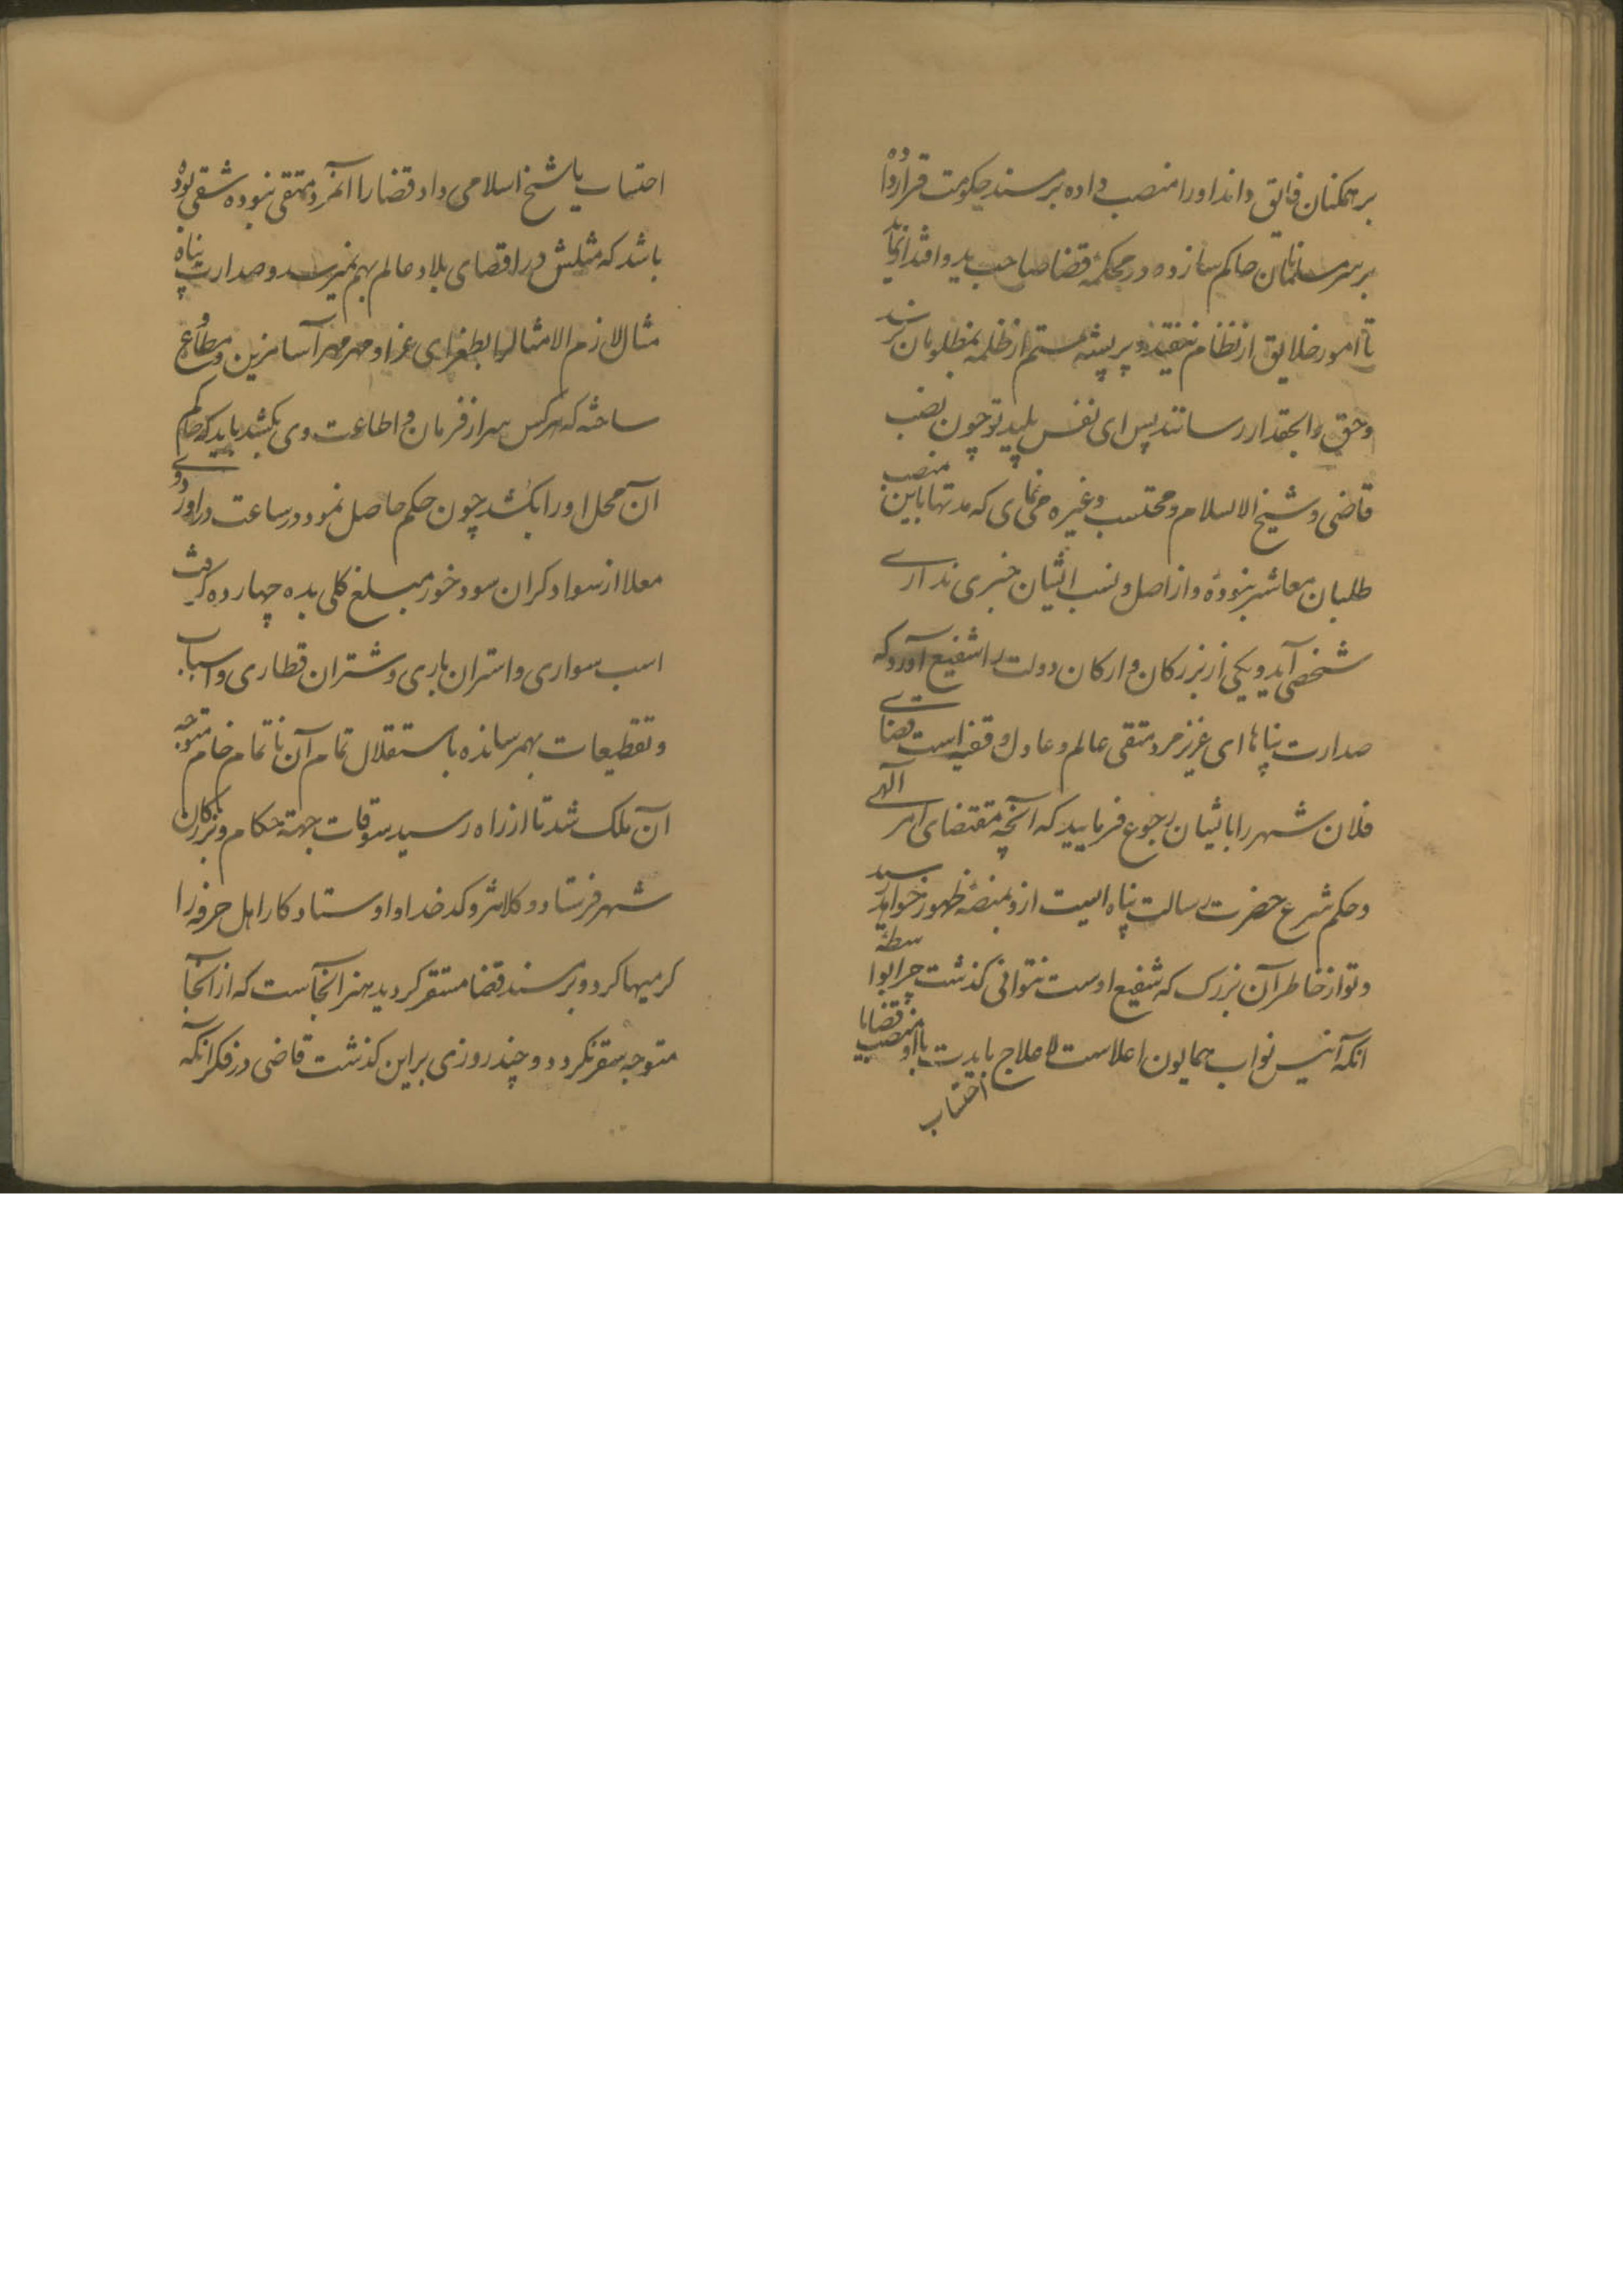 بر همکنان فایق داند او را منصب داده بر مسند حکومت قرار داده
بر سر مسلمانان حاکم سازد و در محکمه قضا صاحب ید و اقتدار نماید
تا امور خلایق از نظام نیفتد و پر پیشه ستم از ظلمه بمظلومان نرسد
و حق را بحقدار رسانند پس ای نفس پلید تو چون نصب
قاضی و شیخ الاسلام و محتسب و غیره می نمای که مدتها باین منصب
طلبان معاشر نبوده و از اصل و نسب ایشان خبری نداری
شخصی آید و یکی از بزرکان و ارکان دولت را شفیع آورد که
صدارت پناها ای عزیز مرد متقی عالم و عادل و فقیه است قضای
فلان شهر را باایشان رجوع فرمایید که آنچه مقتضای امر الهی
و حکم شرع حضرت رسالت پناه ایست ازو بمنصه ظهور خواهد رسید
و تو از خاطر آن بزرک که شفیع اوست نتوانی کذشت چرا بواسطه
انکه انیس نواب همایون اعلاست لاعلاج بایدت با او منصب قضا یا
احتساب
احتساب یا شیخ اسلامی داد قضا را آنمرد متقی نبوده شقی بوده
باشد که مثلش در اقصای بلاد عالم بهم نمیرسد و صدارت پناه
مثال لازم الامثال را بطغرای غرا و مهر مهر آسا مزین و مطاع
ساخته که هرکس سر از فرمان و اطاعت وی بکشد باید که حاکم
آن محل او را بکشد چون حکم حاصل نمود در ساعت در اردوی
معلا از سوادکران سودخور مبلغ کلی بده چهارده کرفت
اسب سواری و استران باری و شتران قطاری و اسباب
و تقطیعات بهم رسانده باستقلال تمام آن ناتمام خام متوجه
آن ملک شد تا از راه رسید سوقات جهته حکام و بزرکان
شهر فرستاد و کلانتر و کدخدا و اوستاد کار اهل حرفه را
کرمیها کرد و بر مسند قضا مستقر کردید هنر انجاست که از انجا
متوجه سقر نکردد و چند روزی براین کذشت قاضی در فکر آنکه